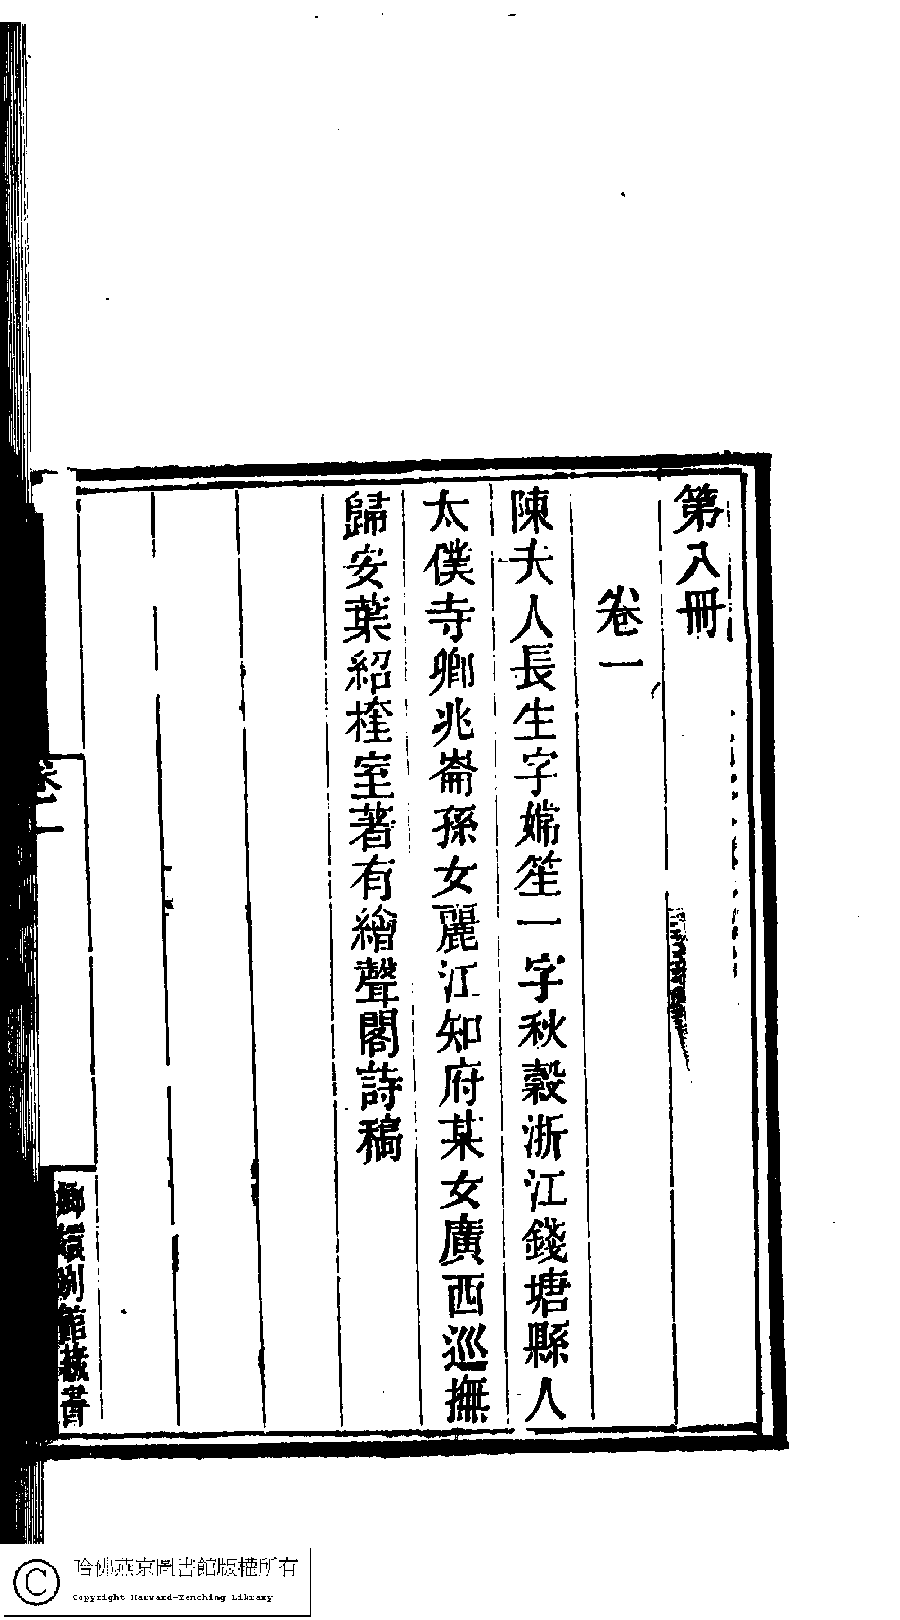 第八冊
卷一
陳夫人長生字嫦笙一字秋穀浙江錢塘縣人
太僕寺卿兆崙孫女麗江知府某女廣西巡撫
歸安葉紹楏室著有繪聲閣詩稿
卷一
嫏嬛別館藏書
哈佛燕京圖書館版權所有
Copyright Harvard-Yenching Library